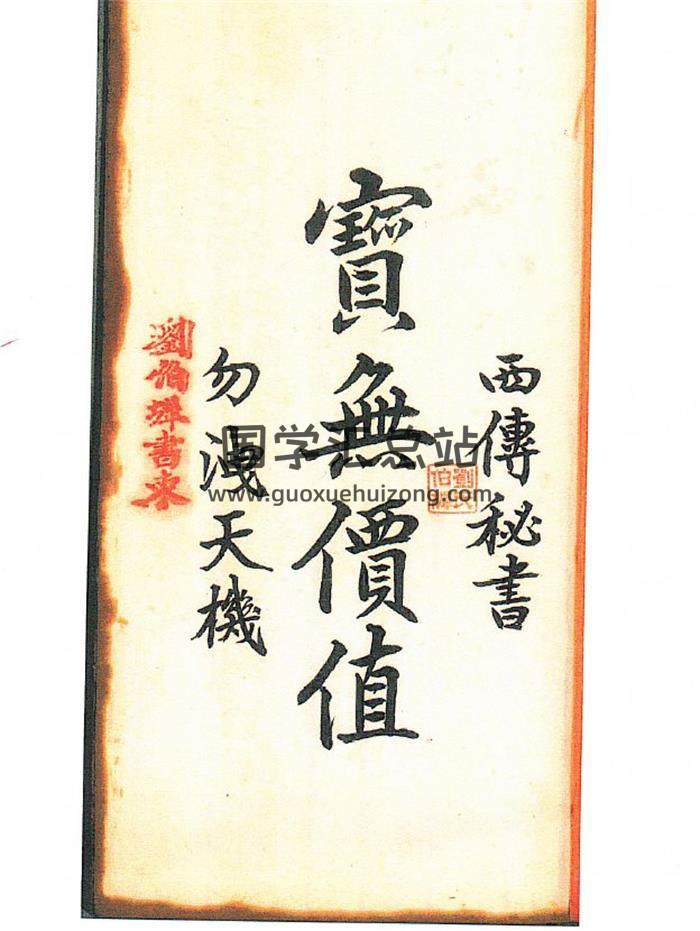 西傳秘書
寶無價值
勿洩天機
劉伯
書束
国学汇总站
www.guoxuehuizong.com